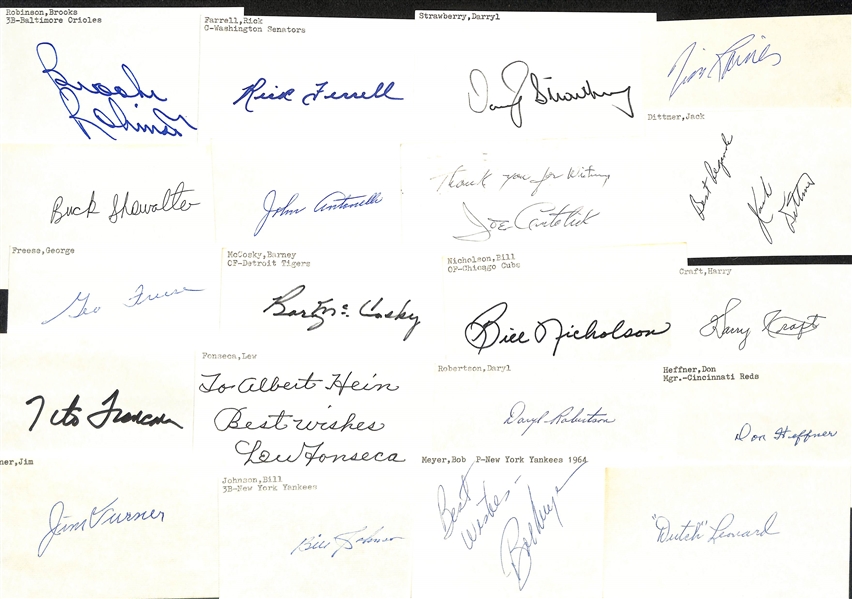 Robinson,Brooks
3B-Baltimore Orioles
Brooks
Robinson
Farrell,Rick
C-Washington Senators
Rick Ferrell
Strawberry,Darryl
Darryl Strawberry
Tim Raines
Buck Showalter
John Antonelli
Thank you for Writing
Dittner,Jack
Best Regards
Jack
Dittmer
Freese,George
Geo Freese
McCosky,Barney
OF-Detroit Tigers
Barney McCosky
Nicholson,Bill
OF-Chicago Cubs
Bill Nicholson
Craft,Harry
Harry Kraft
Tito Francona
Fonseca,Lew
To Albert Hein
Best wishes
Lew Fonseca
Robertson,Daryl
Daryl Robertson
Heffner,Don
Mgr.-Cincinnati Reds
Don Heffner
ner,Jim
Jim Turner
Johnson,Bill
3B-New York Yankees
Bill Johnson
Meyer,Bob P-New York Yankees 1964
Best
Wishes-
Bob Meyer
"Dutch" Leonard